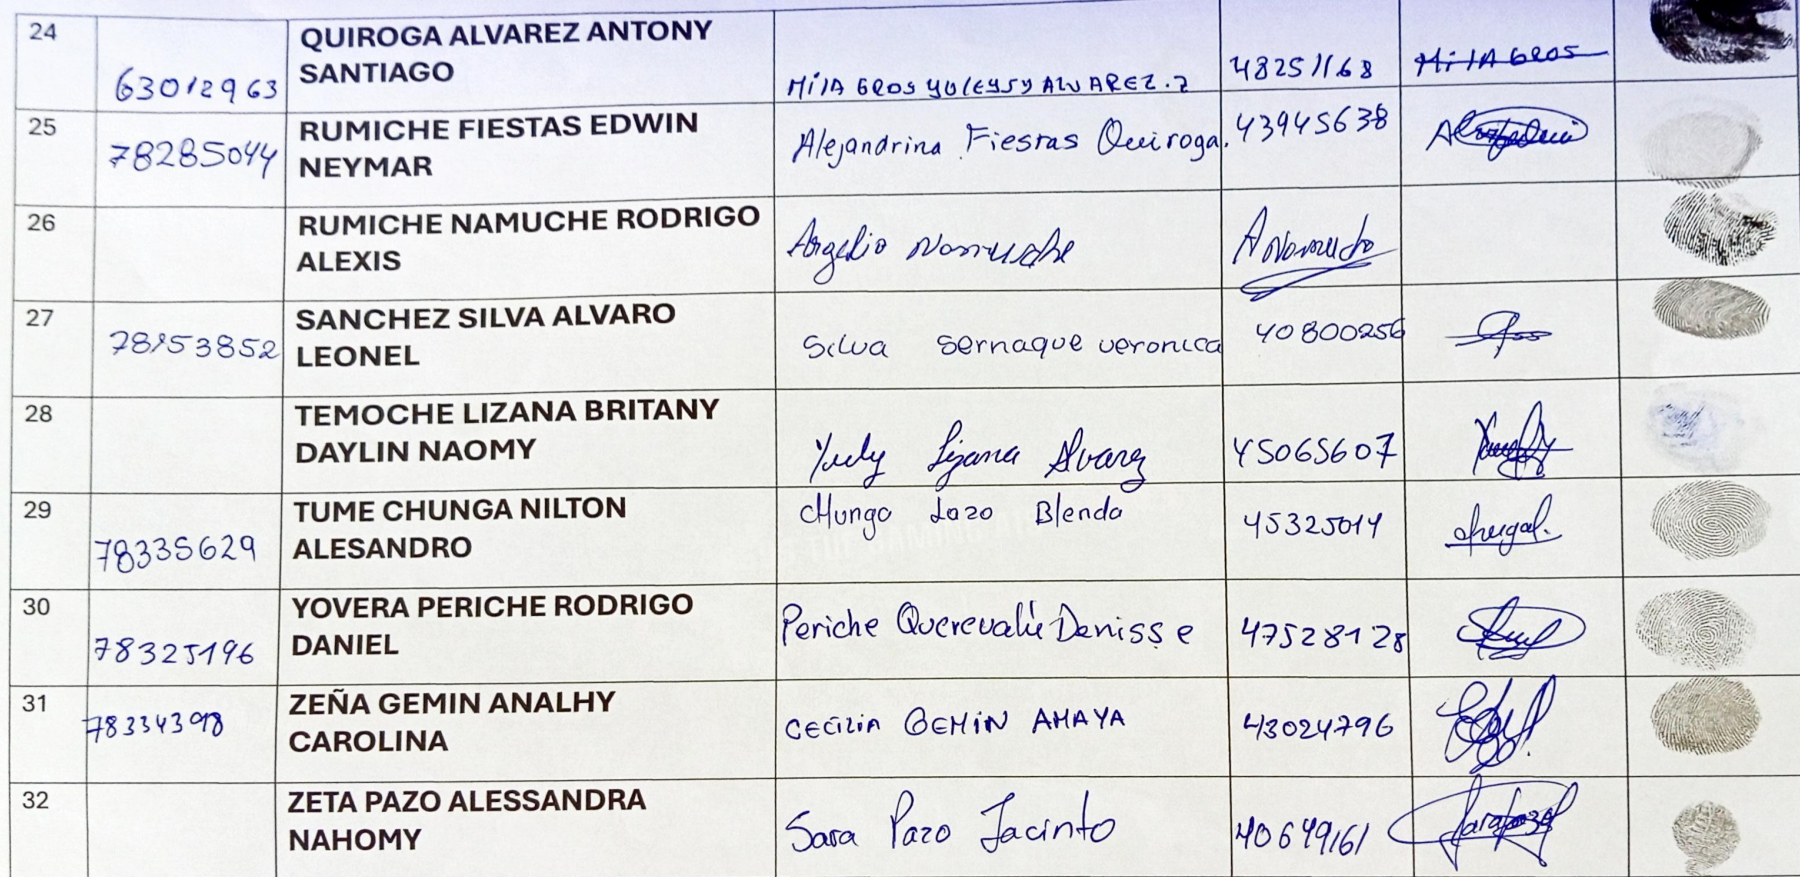 24 QUIROGA ALVAREZ ANTONY
SANTIAGO
63012963 MILAGROS YULEYSY ALVAREZ. 48251168 MILAGROS
25 RUMICHE FIESTAS EDWIN
NEYMAR
78285044 Alejandrina Fiestas Quiroga. 43945638
26 RUMICHE NAMUCHE RODRIGO
ALEXIS
Argelio Namuche ANamuche
27 SANCHEZ SILVA ALVARO
LEONEL
78153852 Silva Sernaque veronica 40800256
28 TEMOCHE LIZANA BRITANY
DAYLIN NAOMY
Yudy Lizana Alvarez 45065607
29 TUME CHUNGA NILTON
ALESANDRO
78335629 Chunga Lazo Blenda 45325014
30 YOVERA PERICHE RODRIGO
DANIEL
78325196 Periche Querevalú Denisse 47528128
31 ZEÑA GEMIN ANALHY
CAROLINA
78334398 CECILIA GEMIN AMAYA 43024796
32 ZETA PAZO ALESSANDRA
NAHOMY
Sara Pazo Jacinto 40649161